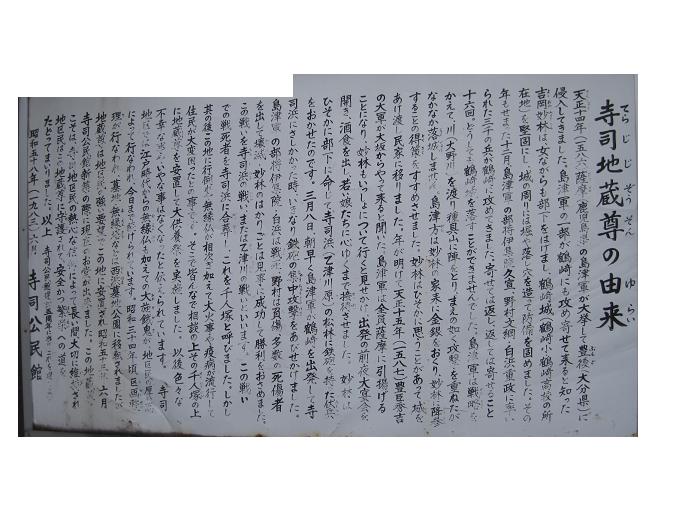 てらじじぞうそん ゆらい
寺司地蔵尊の由来
天正十四年(一五八六)薩摩(鹿児島県)の島津軍が大挙して豊後(大分県)に
侵入してきました。島津軍の一部が鶴崎にも攻め寄せて来ると知った
吉岡妙林は女ながらも部下をはげまし、鶴崎城(鶴崎小、鶴崎高校の所
在地)を堅固にし、城の周りには堀や落し穴を造って防備を固めました。その
年もせまった十二月島津軍の部将伊集院久宣、野村文綱、白浜重政に率い
られた三千の兵が鶴崎に攻めてきました。寄せては返し、返しては寄せること
十六回、どうしても鶴崎城を落すことができませんでした。島津軍は戦略を
かえて、川(大野川)を渡り、種具山に陣をとり、まえの如く攻撃を重ねたが
なかなか落城しません。島津方は妙林の家来に金銀をおくり、妙林に降参
することの得策をすすめさせました。妙林はひそかに思うことがあって、城を
あけ渡し民家に移りました。年が明けて天正十五年(一五八七)豊臣秀吉
の大軍が大坂からやって来ると聞いた島津軍は全員薩摩に引揚げる
ことになり、妙林もいっしょについて行くと見せかけ、出発の前夜大宴会を
開き、酒食を出し若い娘たちに心ゆくまで接待させました。妙林は
ひそかに部下に命じて寺司浜(乙津川原)の松林に鉄砲を持た伏兵
をおかせたのです。三月八日、朝早く島津軍が鶴崎を出発して寺
司浜にさしかかった時、いきなり鉄砲の集中攻撃をあびせかけました。
島津軍の部将伊集院、白浜は戦死、野村は負傷、多数の死傷者
を出して壊滅、妙林のはかりごとは見事に成功して勝利をおさめました。
この戦いを寺司浜の戦い、または乙津川の戦いといいます。この戦い
での戦死者を寺司浜に合葬し、これを千人塚と呼びました。しかし
其の後この地に行倒れ無縁仏が相次ぎ、加えて大火事や疫病が流行して
住民が大変困ったとの事です。そこで皆んなで相談の上その千人塚の上
に地蔵尊を安置して大供養祭を実施しました。以後色々な
不幸な出来事やいやな事はなくなったと伝えられています。寺司
地区では江戸時代からの無縁仏も加えての大施餓鬼が地区民の厚意
によって行なわれ、今日まで続けられています。昭和三十四年頃区画整
理が行なわれ、墓地、無縁塔などは西浜墓地公園に移転されましたが
地蔵尊は地区民の強い要望でこの地に安置され昭和五年六月
寺司公民館新築の際に現在のお堂が出来ました。この地蔵尊
こそは、寺司地区民の熱心な信仰によって長い間大切に維持され
地区民はこの地蔵尊に守護されて、安全かつ繁栄への道を
たどってまいりました。以上
昭和五十八年(一九八三)六月 寺司公民館